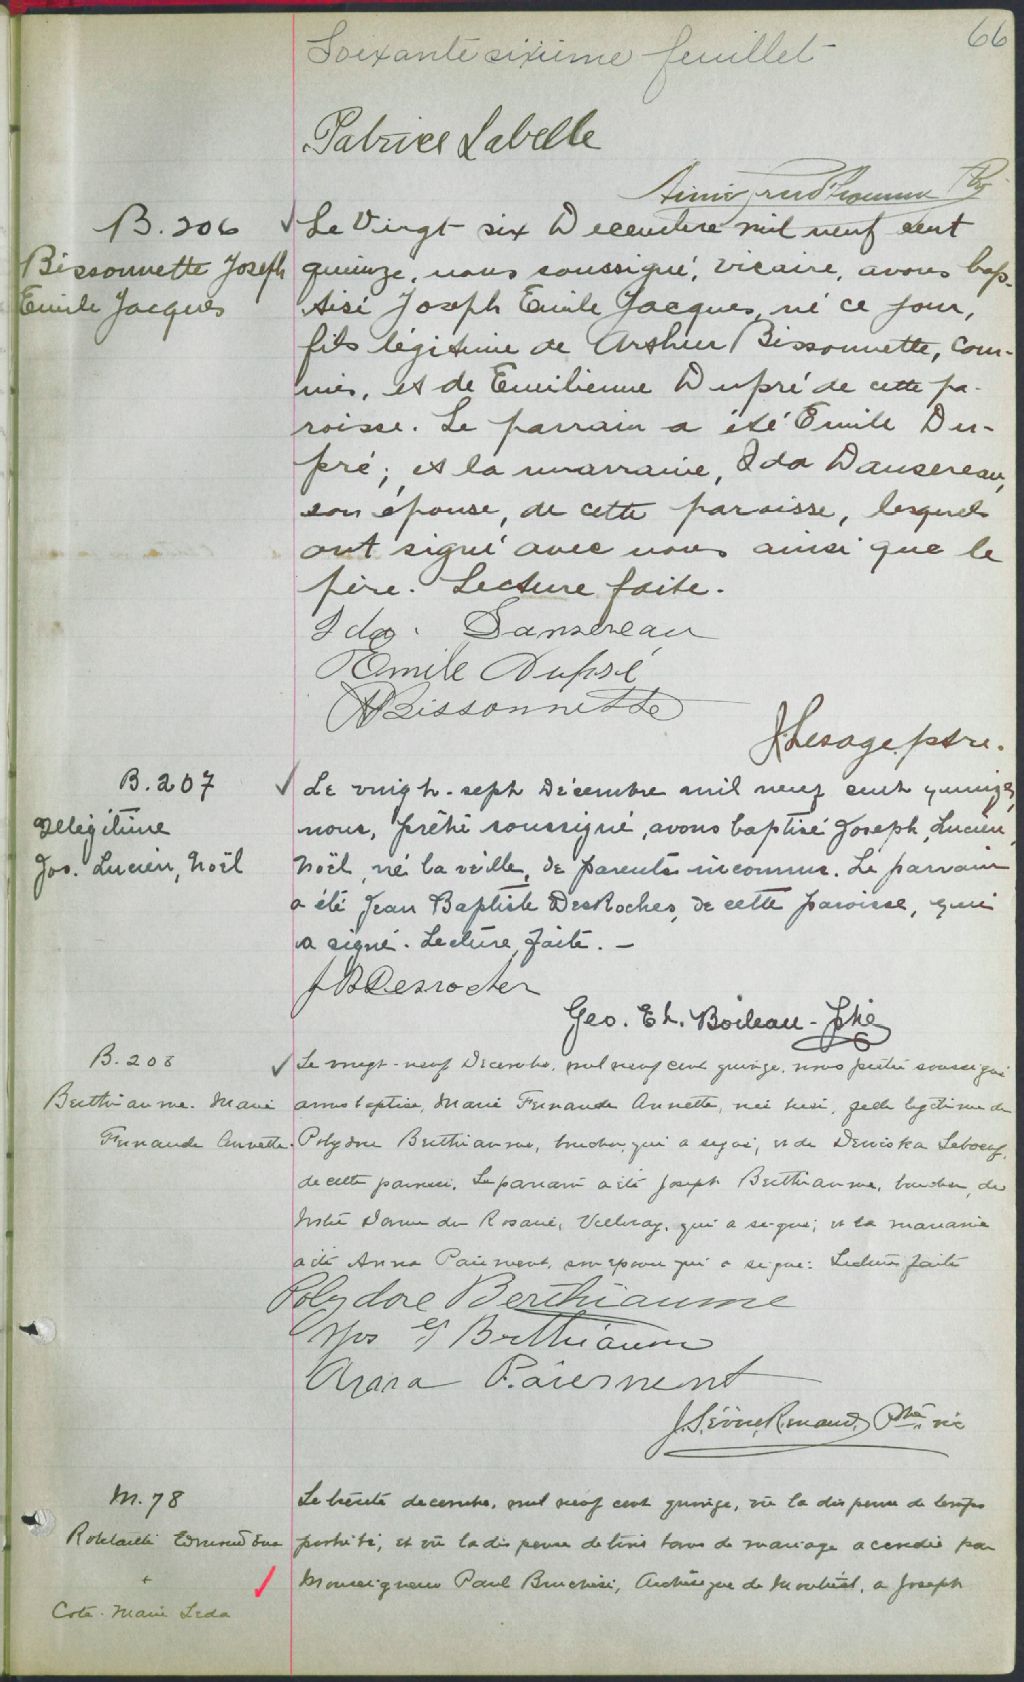 66
Soixante sixième feuillet
Patrice Labelle
B. 206
Bissonnette Joseph
Emile Jacques
Le Vingt six Decembre mil neuf cent
quinze, nous soussigné, vicaire, avons bap-
tisé Joseph Emile Jacques, né ce jour,
fils légitime de Arthur Bissonnette, com-
mis, et de Emilienne Dupré de cette pa-
roisse. Le parrain a été Emile Du-
pré; et la marraine, Ida Dansereau,
son épouse, de cette paroisse, lesquels
ont signé avec nous ainsi que le
père. Lecture faite.
Ida Dansereau
Emile Dupré
A Bissonnette
J. Lesage ptre.
B. 207
Illégitime
Jos. Lucien, Noël
Le vingt-sept Décembre mil neuf cent quinze,
nous, prêtre soussigné, avons baptisé Joseph, Lucien,
Noël, né la veille, de parents inconnus. Le parrain
a été Jean Baptiste DesRoches, de cette paroisse, qui
a signé. Lecture faite. –
J B Desrocher
Geo. Et. Boileau - ptre
B. 208
Berthiaume. Marie
Fernande Annette.
Le vingt-neuf Décembre, mil neuf cent quinze, nous prêtre soussigné
avons baptisé, Marie Fernande Annette, née hier, fille légitime de
Polydore Berthiaume, boucher, qui a signé, et de Leboeuf,
de cette paroisse. Le parrain a été Joseph Berthiaume, boucher, de
Notre Dame du Rosaire, Villeray, qui a signé; et la marraine
a été Anna Paiement, son épouse qui a signé. Lecture faite
Polydore Berthiaume
Jos Berthiaume
Anna Paiement
J. Renaud, Ptre vic
M. 78
Robitaille Edmond
+
Coté. Marie Leda
Le trente decembre, mil neuf cent quinze, vu la dispense de temps
prohibé, et vu la dispense de trois bans de mariage accordée par
Monseigneur Paul Bruchési, Archevêque de Montréal, a Joseph